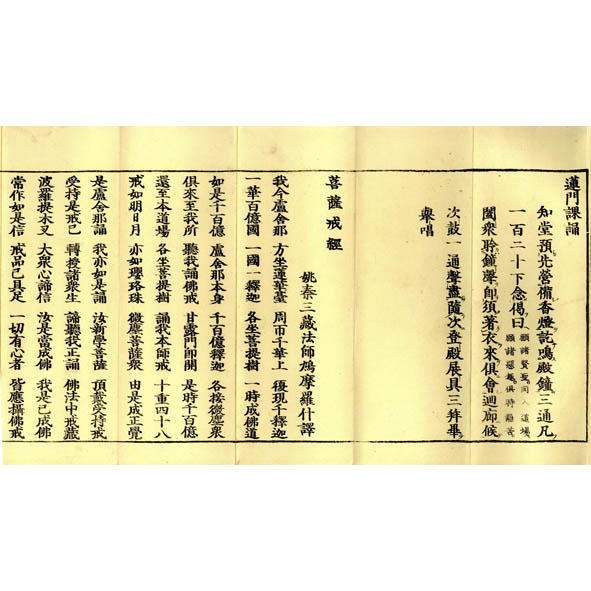 蓮門課誦
知堂預先營備香燈訖鳴殿鐘三通凡
一百二十下念偈曰
願諸賢聖同入道場
願諸惡趣俱時離苦
闔衆聆鐘聲即須著衣來俱會廻廊候
次鼓一通聲盡隨次登殿展具三拜畢
舉唱
菩薩戒經
姚秦三藏法師鳩摩羅什譯
我今盧舍那 方坐蓮華臺 周帀千華上 復現千釋迦
一華百億國 一國一釋迦 各坐菩提樹 一時成佛道
如是千百億 盧舍那本身 千百億釋迦 各接微塵衆
俱來至我所 聽我誦佛戒 甘露門即開 是時千百億
還至本道場 各坐菩提樹 誦我本師戒 十重四十八
戒如明日月 亦如瓔珞珠 微塵菩薩衆 由是成正覺
是盧舍那誦 我亦如是誦 汝新學菩薩 頂戴受持戒
受持是戒已 轉授諸衆生 諦聽我正誦 佛法中戒藏
波羅提木叉 大衆心諦信 汝是當成佛 我是已成佛
常作如是信 戒品已具足 一切有心者 皆應攝佛戒